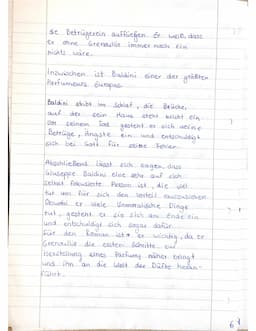 se Betrügereien auffliegen. Er weiß, dass
er ohne Grenouille immer noch ein
nichts wäre.
Inzwischen ist Baldini einer der größten
Parfumeurs Europas.
Baldini stirbt im Schlaf, die Brücke,
auf der sein Haus steht bricht ein
Am seinem Tod gesteht er sich seine
Betrüge, Ängste ein und entschuldigt
sich bei Gott für seine Fehler.
Abschließend lässt sich sagen, dass
Giuseppe Baldini eine sehr auf sich
selbst fokussierte Person ist, die viel
tut um für sich den Vorteil
Obwohl er viele Unmoralische Dinge
tut, gesteht er sie sich am Ende ein
und entschuldigt sich sogar dafür
Für den Roman ist er wichtig, da er
Grenouille die ersten Schritte zur
Herstellung eines Parfums näher bringt
und ihn an die Welt der Düfte heran-
führt.
6